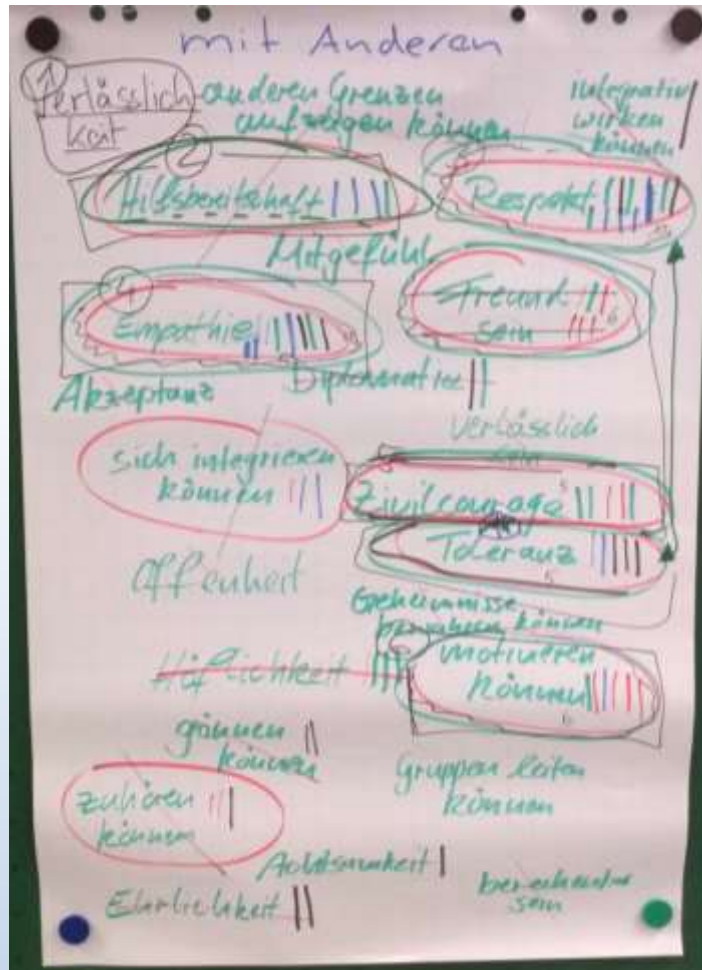 mit Anderen
1
Verlässlich-
keit
anderen Grenzen
aufzeigen können
integrativ
wirken
können
2
Hilfsbereitschaft
Respekt
Mitgefühl
Freund
sein
6
4
Empathie
Akzeptanz
Diplomatie
verlässlich
sein
sich integrieren
können
5
Zivilcourage
Toleranz
5
Offenheit
Geheimnisse
bewahren können
Höflichkeit
motivieren
können
6
gönnen
können
Gruppen leiten
können
zuhören
können
Achtsamkeit
Ehrlichkeit
sein